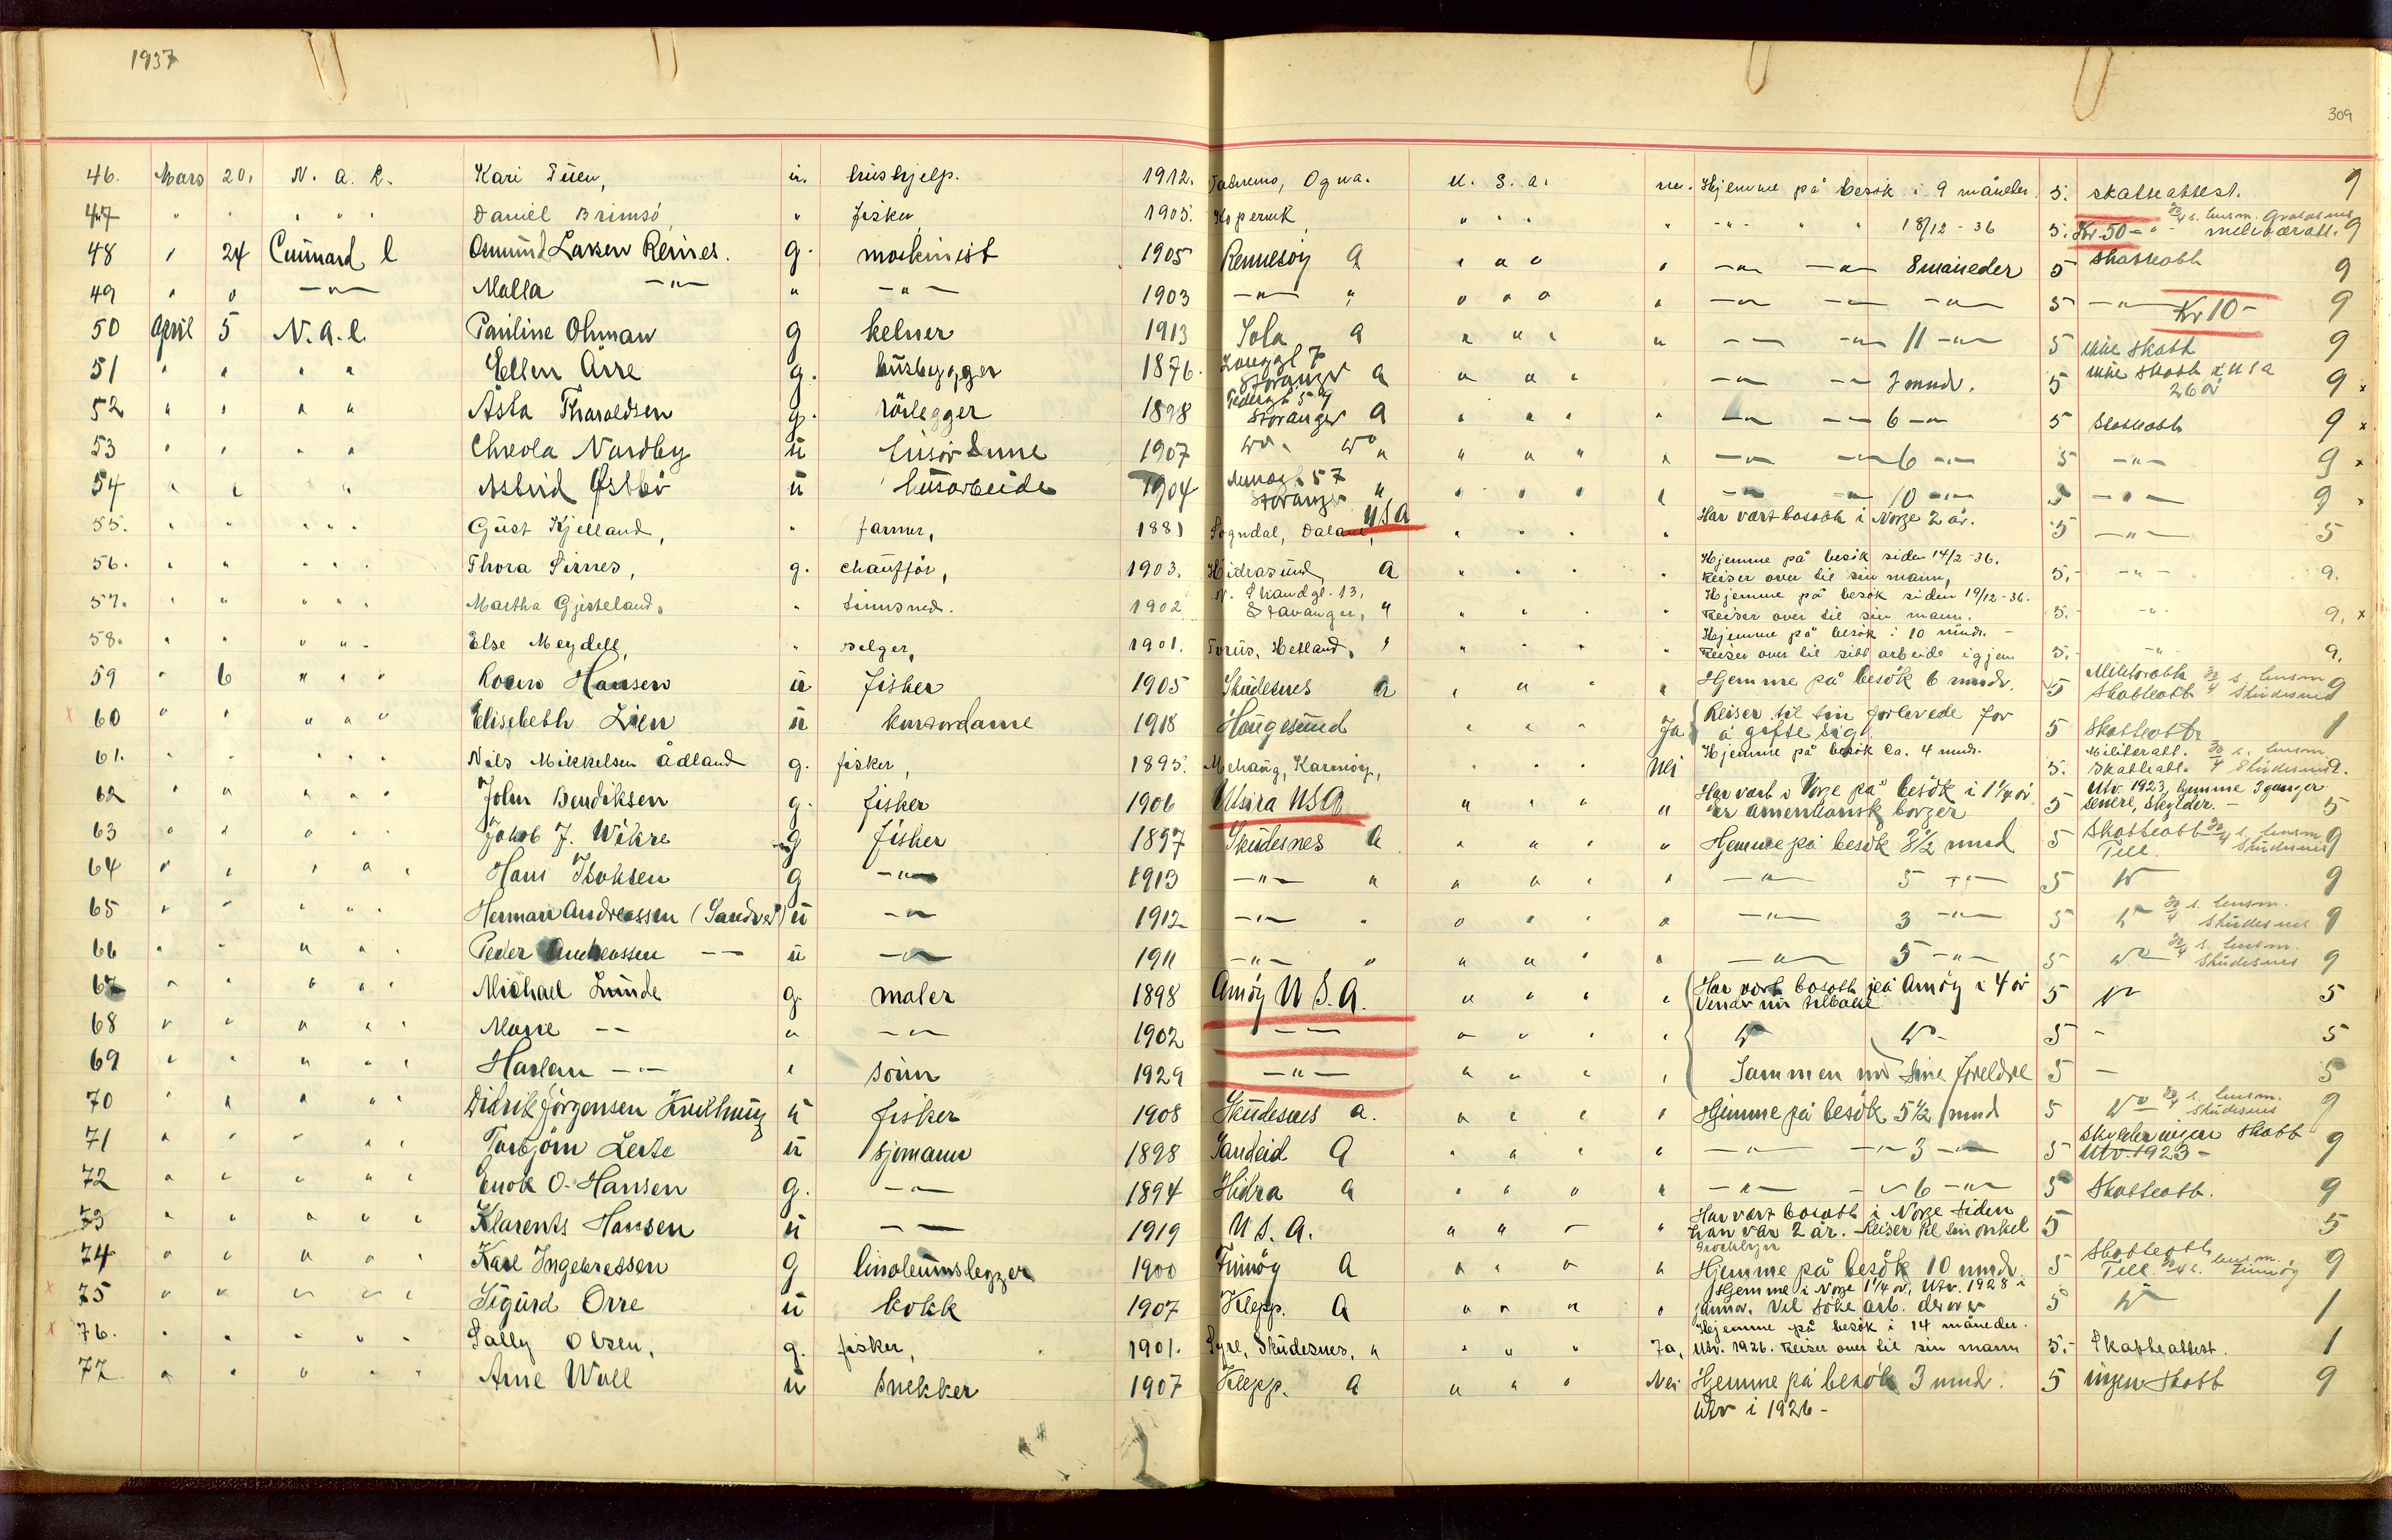 1937
309
46. Mars 20. N. A. L. Kari Tuen, u. hushjelp. 1912. Ogna. U. S. A. nei. Hjemme på besök i 9 måneder. 5. skatteattest. 9
47 " " " " " Daniel Brimsö " fisker, 1905. Kopervik, " " " " - " - " " 18/12 - 36 5. Kr. 50 - " - militæratt. 9
48 " 24 Cunnard l Osmund Larsen Rennes. g. maskinist 1905 Rennesöy A " " " " - " - - " - 8 måneder 5 Skatteatt 9
49 " " - " - Malla - " - " - " - 1903 - " - " " " " " - " - - " - - " - 5 - " - Kr 10 - 9
50 April 5 N. A. L. Pauline Ohman g kelner 1913 Sola A " " " " - " - - " - 11 - " - 5 ikke skatt 9
51 " " " " Ellen Årre g. husbygger 1876. Stavanger A " " " - " - - " - 3 mndr. 5 ikke skatt i USA 26 år 9 x
52 " " " " Åsta Tharaldsen g. rörlegger 1898 Pedersgt 59 Stavanger A " " " " - " - - " - 6 - " - 5 Skatteatt 9 x
53 " " " " Nordby u husördinne 1907 do. do " " " " " - " - - " - 6 - " - 5 - " - 9 x
54 " " " " Astrid Østbö u husarbeide 1904 57 Stavanger " " " " " - " - - " - 10 - " - 5 - " - 9 x
55. " " " " " Gust Kjelland, " farmer, 1881 Sogndal, Dalane, USA " " " " Har vært bosatt i Norge 2 år. 5 - " - 5
56. " " " " " Thora Sirnes, g. chauffør, 1903. Hidrasund, A " " " " Hjemme på besök siden 14/2 - 36.
Reiser over til sin mann, 5. - " - 9.
57. " " " " " Martha Gjesteland, " tinnsmed. 1902 N. Strandgt. 13, Stavanger, " " " " " Hjemme på besök siden 19/12 - 36.
Reiser over til sin mann. 5. - " - 9, x
58. " " " " " Else Meydell, " selger, 1901. Hetland, " " " " " Hjemme på besök i 10 mndr. -
Reiser over til sitt arbeide igjen 5. - " - 9.
59 " 6 " " " Hansen u fisker 1905 Skudesnes A " " " " Hjemme på besök 6 mndr. 5 Militæratt Skatteatt 30/4 s. lensm Skudesnes 9
x 60 " " " " " Elisebeth Lien u husordanne 1918 Haugesund " " " Ja Reiser til sin forlovede for
å gifte sig. 5 Skatteatt 1
61. " " " " " Nils Mikkelsen Ådland g. fisker, 1895. Karmöy, " " " Nei Hjemme på besök ca. 4 mndr. 5. Militæratt. Skatteatt. 30/4 s. lensm Skudesnes.
62 " " " " " John Bendiksen g. fisker 1906 Utsira USA " " " " Har vært i Norge på besök i 1 1/4 år
er amerikansk borger 5 Utv. 1923, hjemme 3 ganger senere, skylder. - 5
63 " " " " " Jakob J. Wikre g fisker 1897 Skudesnes A " " " " Hjemme på besök 3 1/2 mnd 5 Skatteatt Till. 30/4 s. lensm Skudesnes 9
64 " " " " " Hans g - " - 1913 - " - " " " " " - " - 5 - " - 5 do 9
65 " " " " " Herman Andreassen (Sandvei) u - " - 1912 - " - " " " - " - 3 - " - 5 do 30/4 s. lensm. Skudesnes 9
66 " " " " " Peder Andreassen - - u - " - 1911 - " - " " " " " - " - 5 - " - 5 do 30/4 s. lensm. Skudesnes 9
67 " " " " " Michael Lunde g. maler 1898 Amöy U. S. A. " " " " Har vært bosatt på Amöy i 4 år
Vender nu tilbake 5 do 5
68 " " " " " Marie - - " - " - 1902 - - " " " " do do - 5 - 5
69 " " " " " Harlan - " - " sönn 1929 - " - " " " " Sammen med sine foreldre 5 - 5
70 " " " " " Didrik Jörgensen u fisker 1908 Skudesnes A. " " " " Hjemme på besök 5 1/2 mnd 5 do 30/4 s. lensm. Skudesnes 9
71 " " " " " Torbjörn Leite u sjömann 1898 Sandeid A " " " " - " - - " - 3 - " - 5 Skylder ingen skatt Utv. 1923 - 9
72 " " " " " Enok O. Hansen g. - " - 1894 Hidra A " " " " - " - - " - 6 - " - 5 Skatteatt. 9
73 " " " " " Klarents Hansen u - - 1919 U. S. A. " " - " Har vært bosatt i Norge siden
han var 2 år. - Reiser til sin onkel
Brooklyn 5 5
74 " " " " " Karl Ingebretsen g linoleumslegger 1900 Finnöy A " " " " Hjemme på besök 10 mndr. 5 Skatteatt Till lensm. Finnöy 9
x 75 " " " " " Sigurd Orre u kokk 1907 Klepp. A " " " " Hjemme i Norge 1 1/4 år, Utv. 1928 i
januar. Vil söke arb. derover 5 do 1
x 76. " " " " " Sally Olsen, g. fisker, 1901. Syre, Skudesnes, " " " " Ja, Hjemme på besök i 14 måneder.
Utv. 1926. Reiser over til sin mann 5. - Skatteattest. 1
77 " " " " " Arne Wall u snekker 1907 Klepp. A " " " Nei Hjemme på besök 3 mnd. 5 ingen Skatt 9
Utv i 1926 -